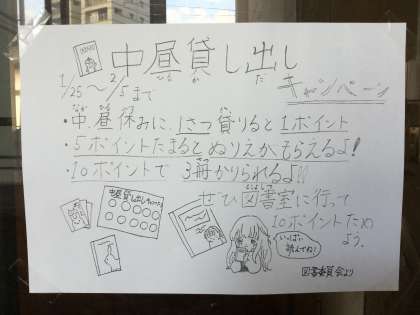 中昼貸し出し
キャンペーン
1/25～2/5まで
・中昼休みに、1さつ貸りると1ポイント
・5ポイントたまるとぬりえがもらえるよ!
・10ポイントで 3冊かりられるよ!!
ぜひ図書室に行って
10ポイントため
よう。
いっぱい
読んでね!
図書委員会より